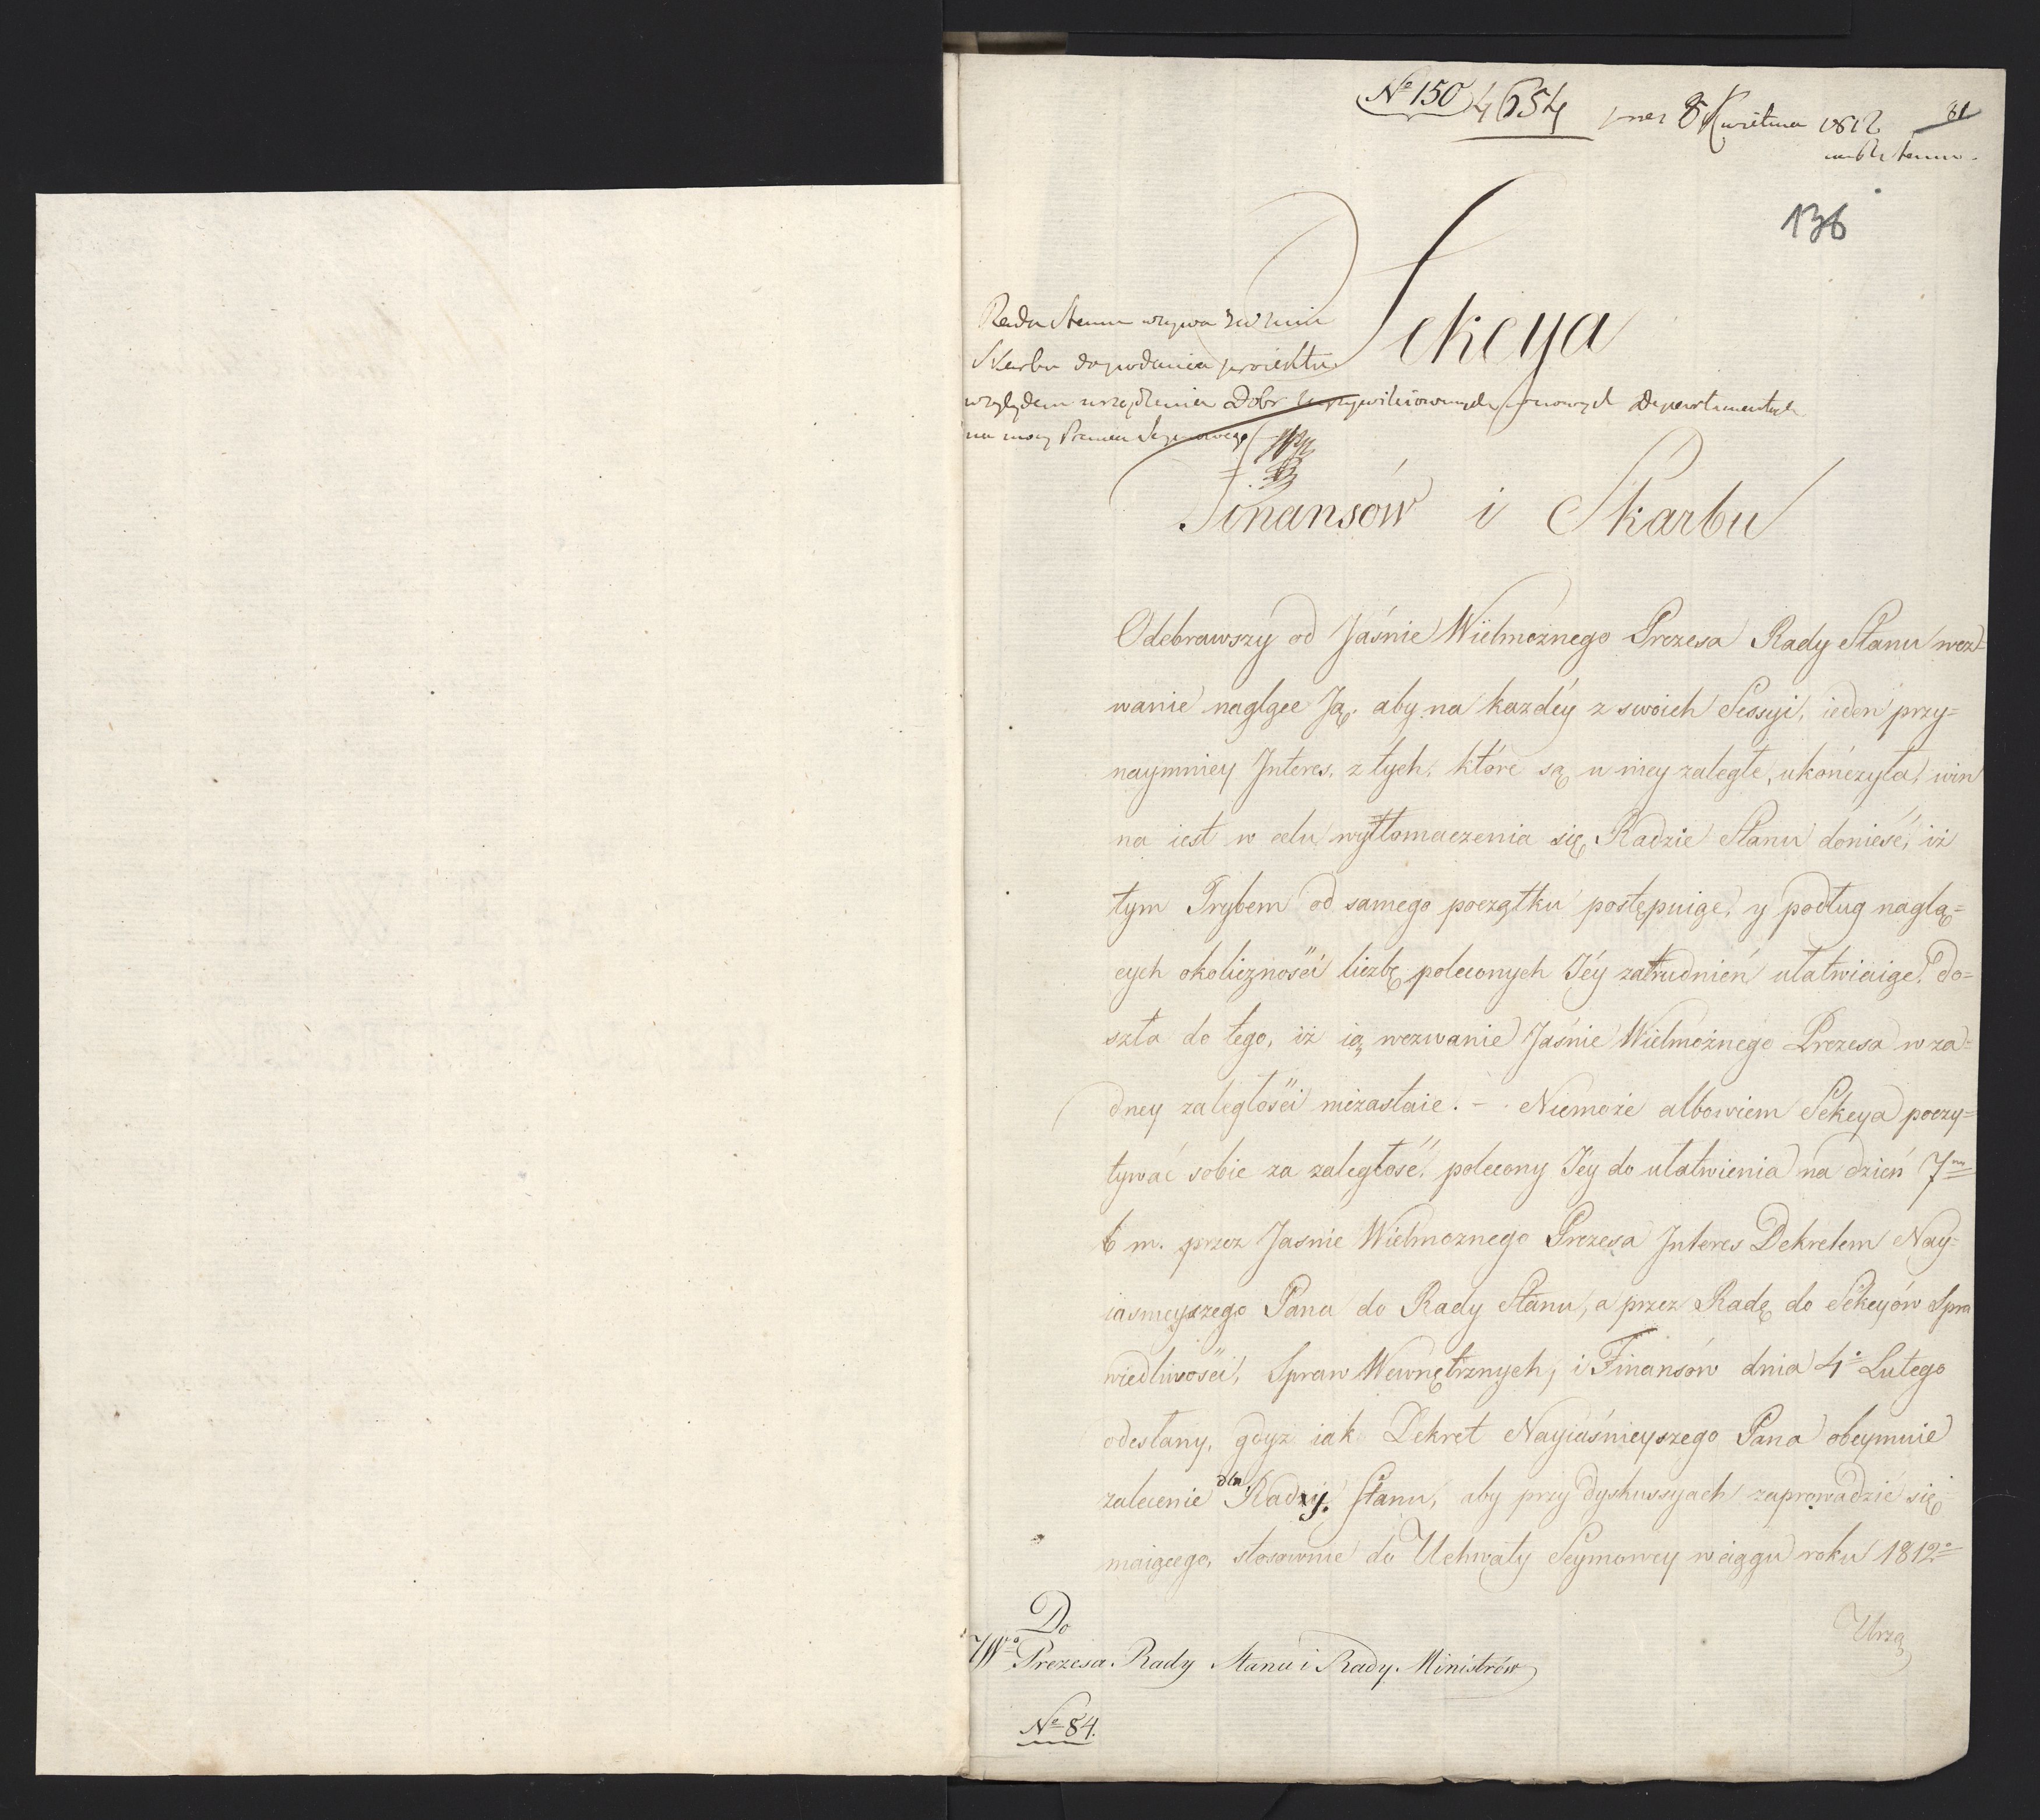 No 150 4654 pres 8 Kwietnia 1812 81
136
Sekcya
Rada Stanu wzywa
Skarbu do podania proiektu
względem urządzenia Dobr Departamentach
na mocy Prawa Seymowego
Finansów i Skarbu
Odebrawszy od Jaśnie Wielmożnego Prezesa Rady Stanu wez=
wanie naglące Ją, aby na każdéy z swoich Sessyi, ieden przy=
naymniey Interes, z tych, które są u niey zaległe, ukończyła, win
na iest w celu wytłomaczenia się Radzie Stanu donieść, iż
tym Trybem od samego początku postępuiąc, y podług naglą=
cych okoliczności liczbę poleconych Jéy zatrudnień ułatwiaiąc, do=
szła do tego, iż ią wezwanie Jaśnie Wielmożnego Prezesa w ża=
dney zaległości niezastaie. – Niemoże albowiem Sekcya poczy=
tywać sobie za zaległość, polecony Jéy do ułatwienia na dzień 7m
b m. przez Jasnie Wielmoznego Prezesa Interes Dekretem Nay=
iasnieyszego Pana do Rady Stanu, a przez Radę do Sekcyów Spra
wiedliwości, Spraw Wewnętrznych, i Finansów dnia 4o Lutego
odesłany, gdyz iak Dekret Nayiaśnieyszego Pana obeymuie
zalecenie dla Rady Stanu, aby przy dyskussyach zaprowadzić się
maiącego, stosownie do Uchwały Seymowey w ciągu roku 1812o
Urzą
Do
JWo Prezesa Rady Stanu i Rady Ministrów
No 84.